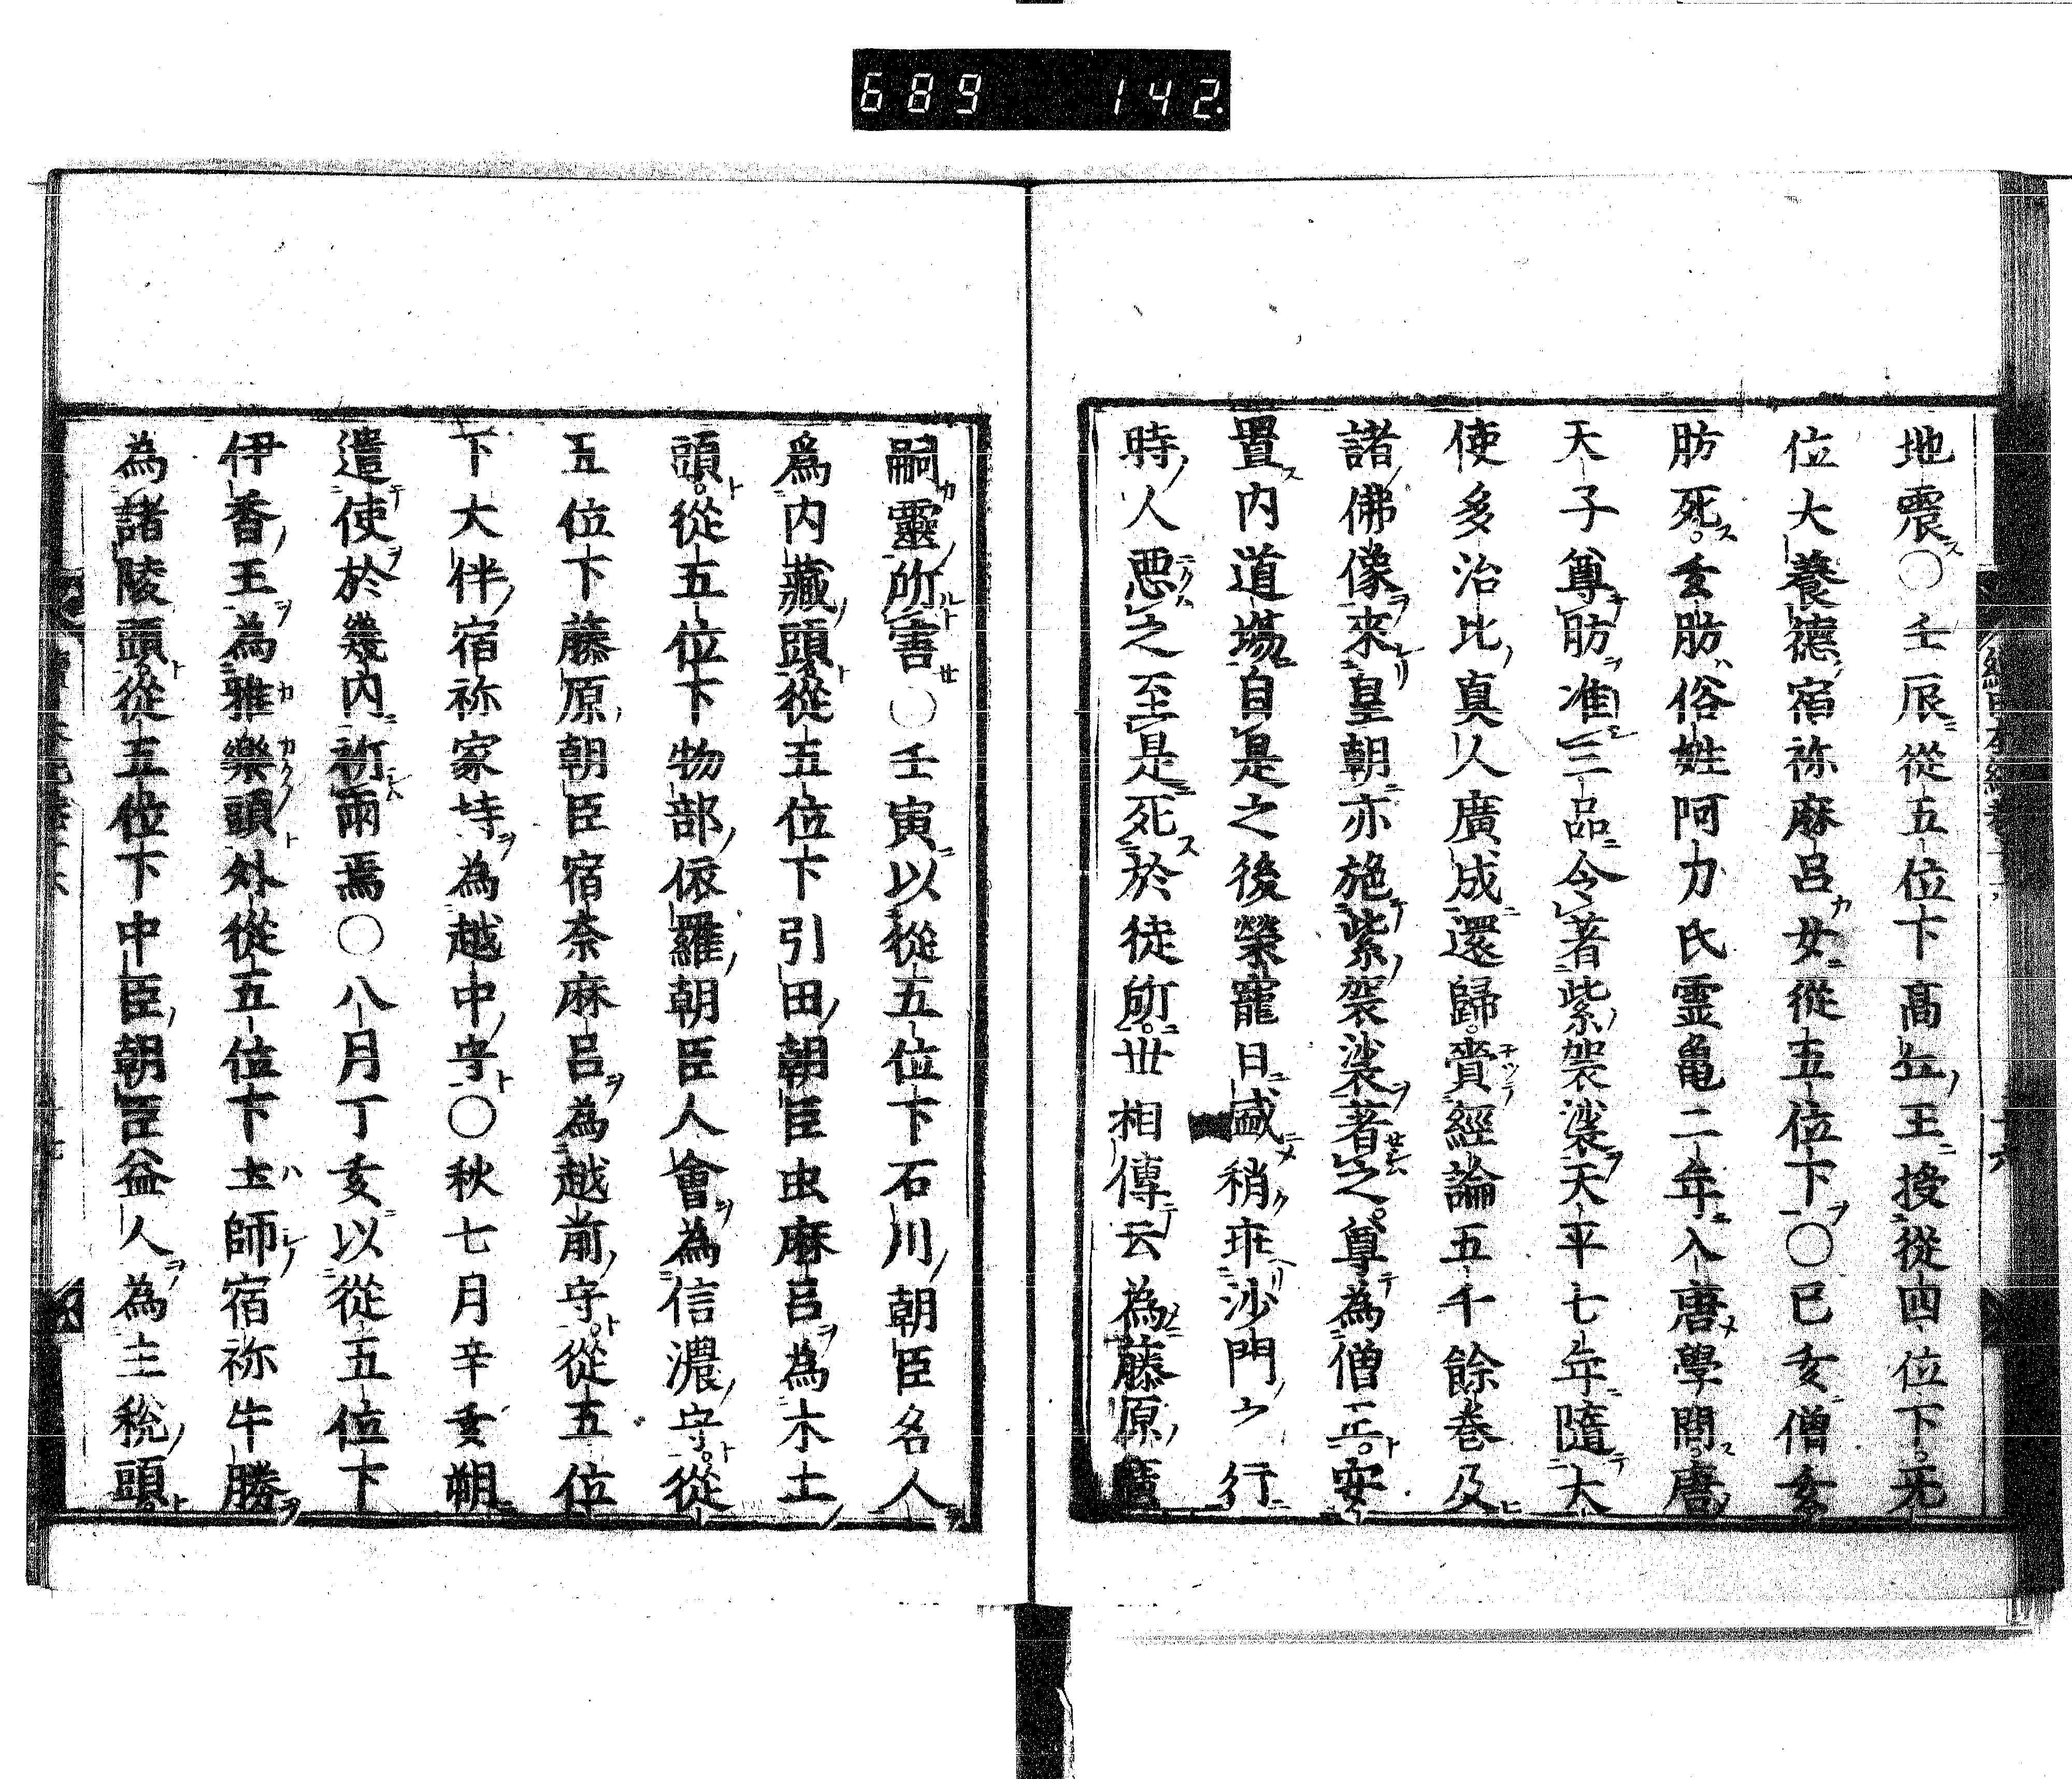 689 142
地震〇壬辰從五位下高丘王授從四位下无
位大養德宿祢麻呂女從五位下〇已亥僧玄
肪死玄肪俗姓阿刀氏霊亀二年入唐學問唐
天子尊肪准三品令著紫袈裟天平七年隨大
使多治比真人廣成還歸賷經論五千餘巻及
諸佛像來皇朝亦施紫袈裟著之尊為僧正安
置内道場自是之後榮寵日盛稍乖沙門之行
時人悪之至是死於徒所世相傳云為藤原廣
嗣靈所害〇壬寅以從五位下石川朝臣名人
為内藏頭從五位下引田朝臣虫麻呂為木土
頭從五位下物部依羅朝臣人會為信濃守從
五位下藤原朝臣宿奈麻呂為越前守從五位
下大伴宿祢家持為越中守〇秋七月辛亥朔
遣使於幾内祈雨焉〇八月丁亥以從五位下
伊香王為雅樂頭外從五位下土師宿祢牛勝
為諸陵頭從五位下中臣朝臣益人為主税頭